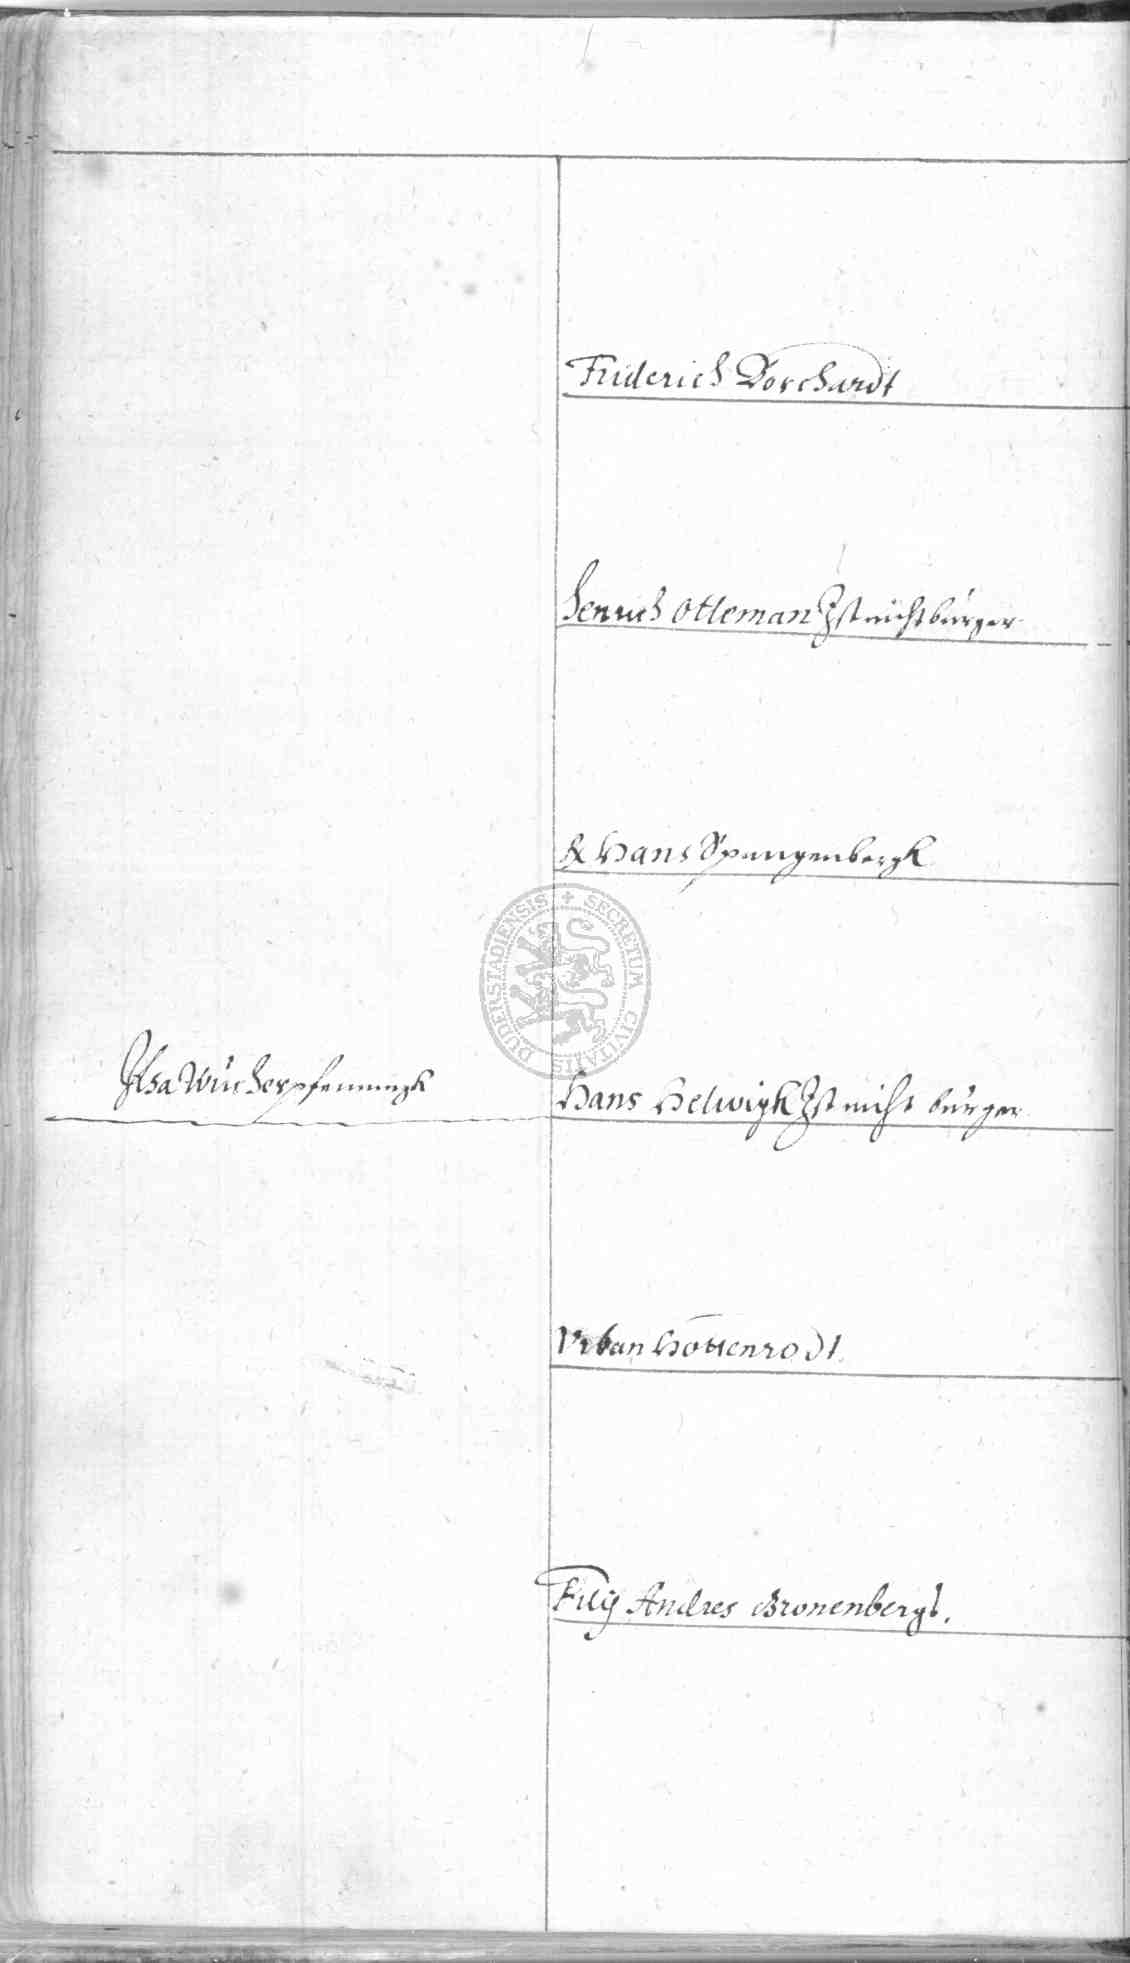 Friderich Borchardt
Henrich Otleman Ist nicht bürger
& Hans Spangenbergk
SECRETUM CIVITATIS DUDERSTADIENSIS
Ilsa Wucherpfenningk
Hans Helwigk Ist nicht bürger
Vrban Hottenrodt
Filij Andres Bronenbergs.